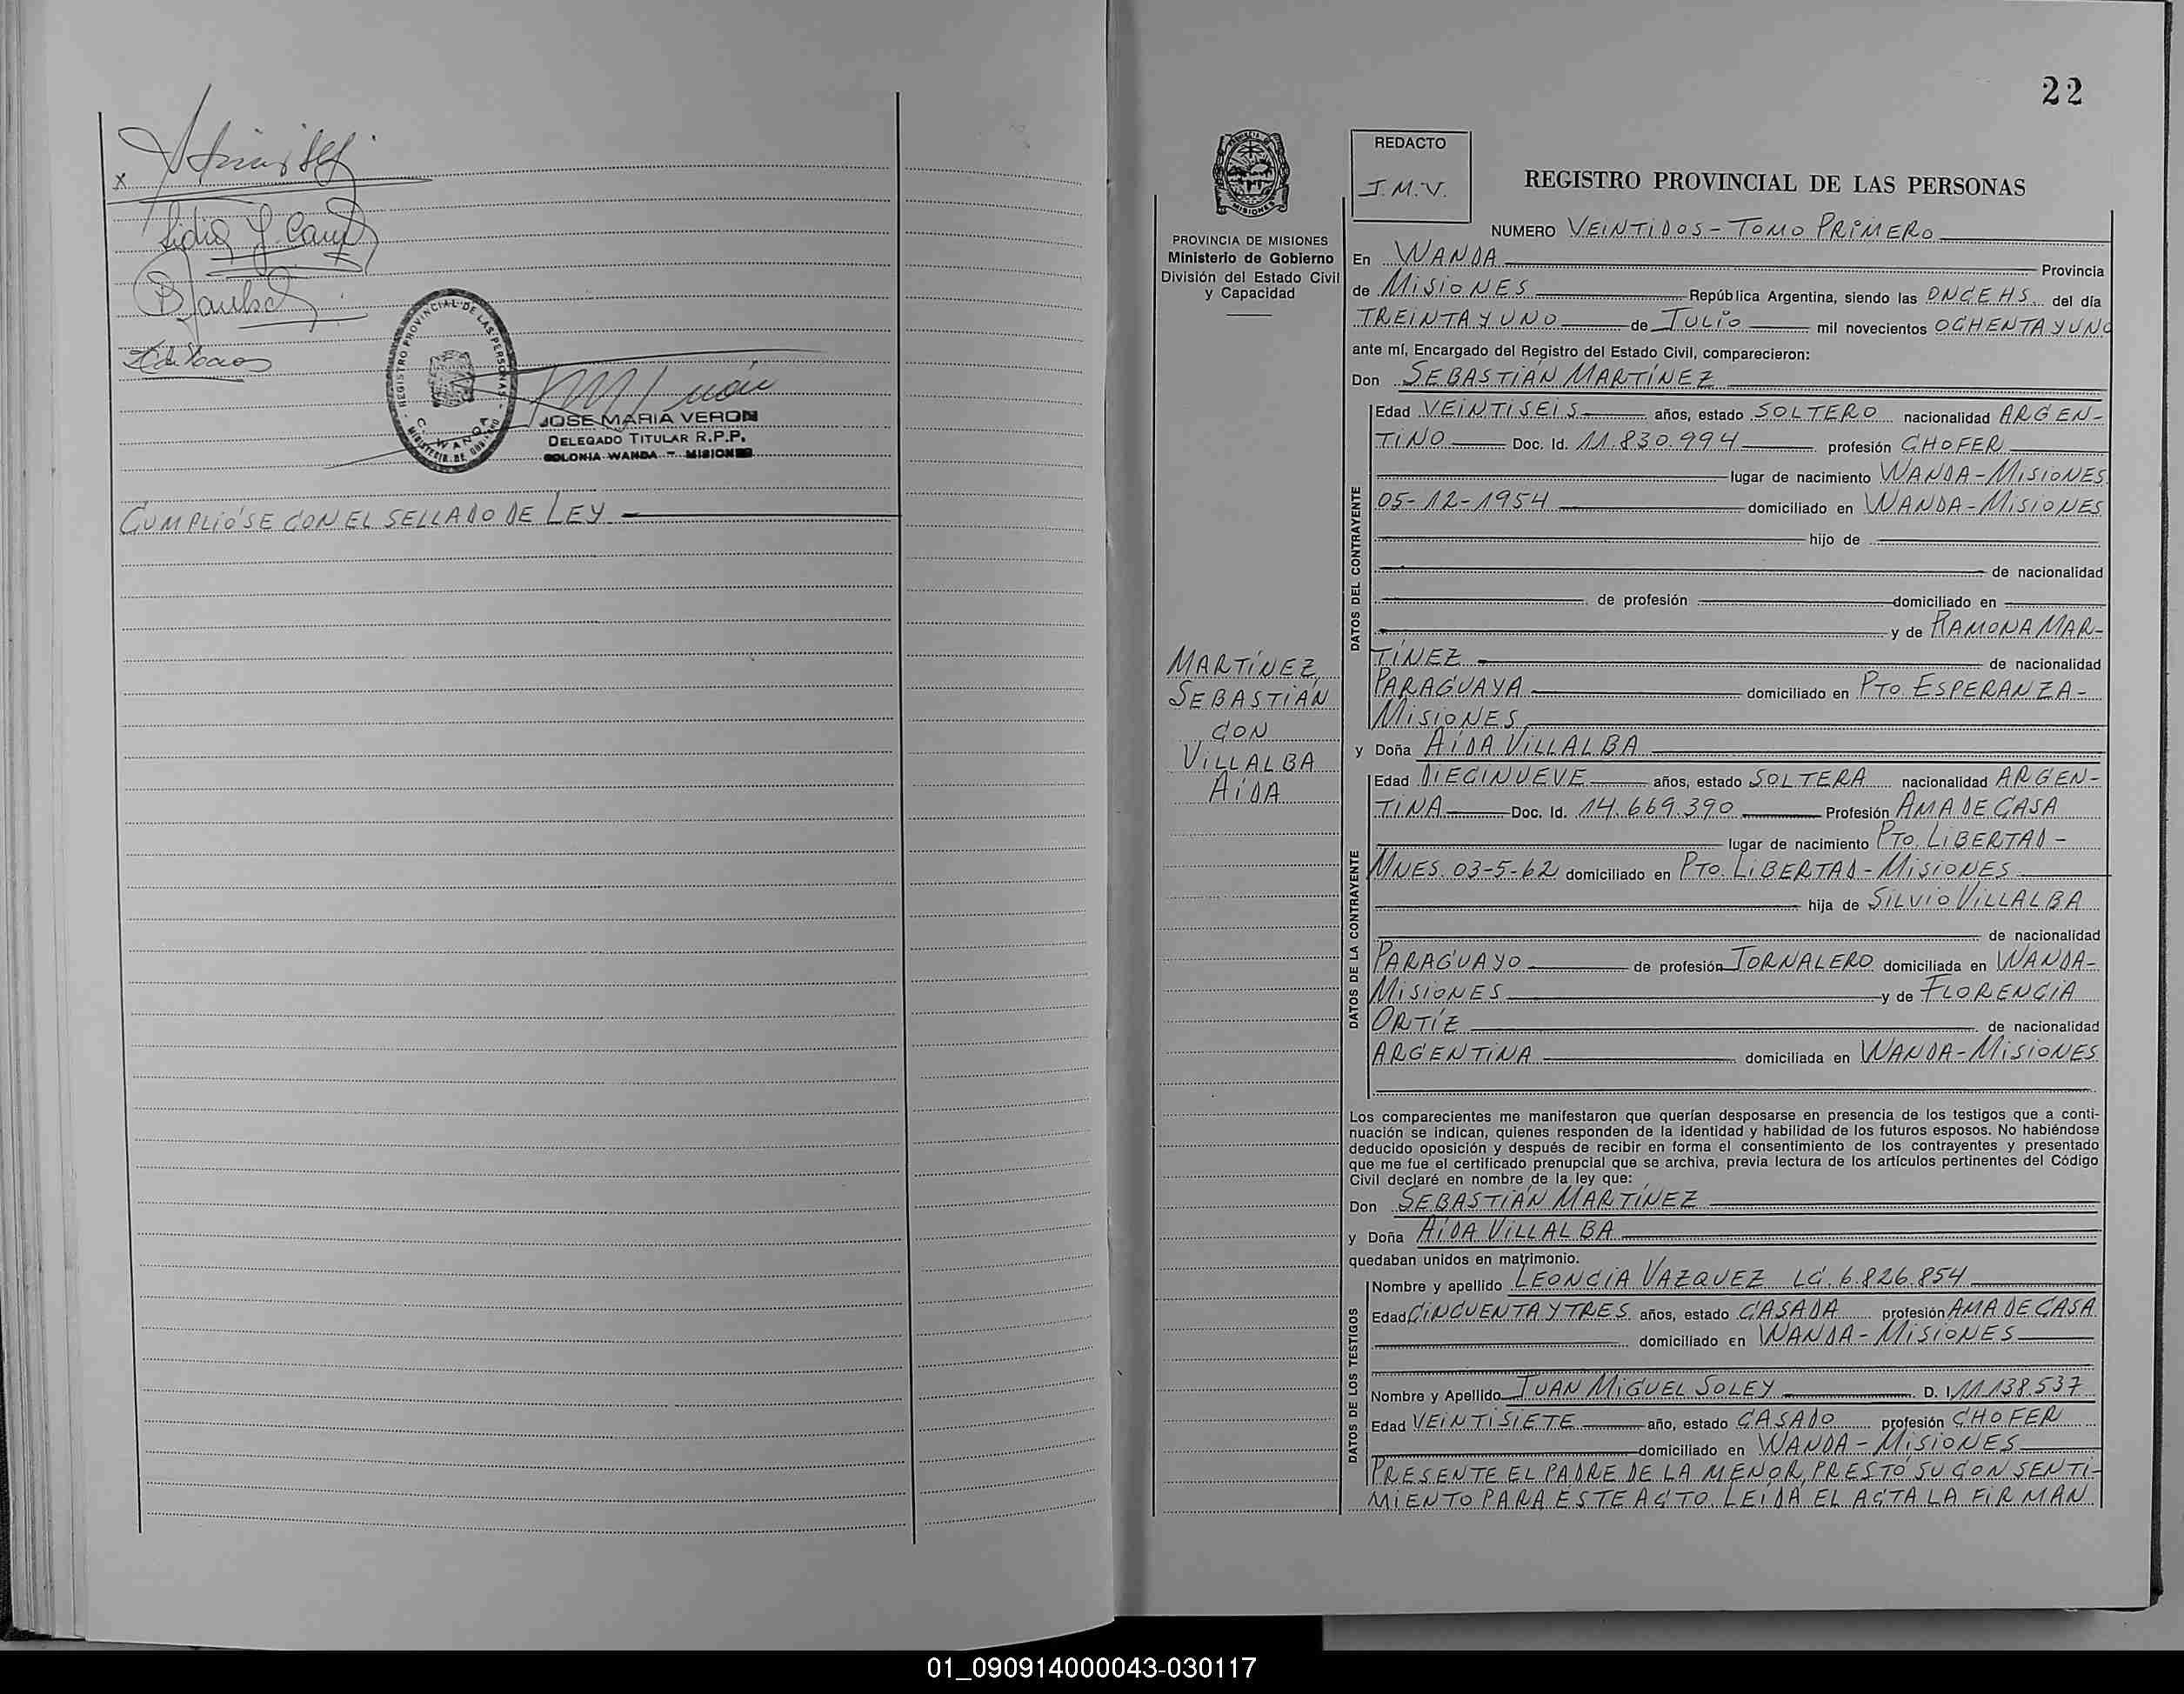 x
REGISTRO PROVINCIAL DE LAS PERSONAS
C. WANDA
JOSE MARIA VERON
DELEGADO TITULAR R.P.P.
COLONIA WANDA - MISIONES
CUMPLIÓSE CON EL SELLADO DE LEY
22
REDACTO
J.M.V.
PROVINCIA DE MISIONES
Ministerio de Gobierno
División del Estado Civil
y Capacidad
MARTÍNEZ
SEBASTIÁN
CON
VILLALBA
AÍDA
REGISTRO PROVINCIAL DE LAS PERSONAS
NUMERO VEINTIDOS - TOMO PRIMERO
En WANDA Provincia
de MISIONES República Argentina, siendo las ONCE HS. del día
TREINTA Y UNO de JULIO mil novecientos OCHENTA Y UNO
ante mí, Encargado del Registro del Estado Civil, comparecieron:
Don SEBASTIÁN MARTÍNEZ
DATOS DEL CONTRAYENTE
Edad VEINTISEIS años, estado SOLTERO nacionalidad ARGEN-
TINO Doc. Id. 11.830.994 profesión CHOFER
lugar de nacimiento WANDA - MISIONES
05-12-1954 domiciliado en WANDA - MISIONES
hijo de
de nacionalidad
de profesión domiciliado en
y de RAMONA MAR-
TÍNEZ de nacionalidad
PARAGUAYA domiciliado en PTO. ESPERANZA -
MISIONES
y Doña AÍDA VILLALBA
DATOS DE LA CONTRAYENTE
Edad DIECINUEVE años, estado SOLTERA nacionalidad ARGEN-
TINA Doc. Id. 14.669.390 Profesión AMA DE CASA
lugar de nacimiento PTO. LIBERTAD -
MNES. 03-5-62 domiciliado en PTO. LIBERTAD - MISIONES
hija de SILVIO VILLALBA
de nacionalidad
PARAGUAYO de profesión JORNALERO domiciliada en WANDA -
MISIONES y de FLORENCIA
ORTÍZ de nacionalidad
ARGENTINA domiciliada en WANDA - MISIONES
Los comparecientes me manifestaron que querían desposarse en presencia de los testigos que a conti-
nuación se indican, quienes responden de la identidad y habilidad de los futuros esposos. No habiéndose
deducido oposición y después de recibir en forma el consentimiento de los contrayentes y presentado
que me fue el certificado prenupcial que se archiva, previa lectura de los artículos pertinentes del Código
Civil declaré en nombre de la ley que:
Don SEBASTIÁN MARTÍNEZ
y Doña AÍDA VILLALBA
quedaban unidos en matrimonio.
DATOS DE LOS TESTIGOS
Nombre y apellido LEONCIA VAZQUEZ LC. 6.826.854
Edad CINCUENTA Y TRES años, estado CASADA profesión AMA DE CASA
domiciliado en WANDA - MISIONES
Nombre y Apellido JUAN MIGUEL SOLEY D. I. 11.138.537
Edad VEINTISIETE año, estado CASADO profesión CHOFER
domiciliado en WANDA - MISIONES
PRESENTE EL PADRE DE LA MENOR, PRESTÓ SU CONSENTI-
MIENTO PARA ÉSTE ACTO LEÍDA EL ACTA LA FIRMAN
01_090914000043-030117